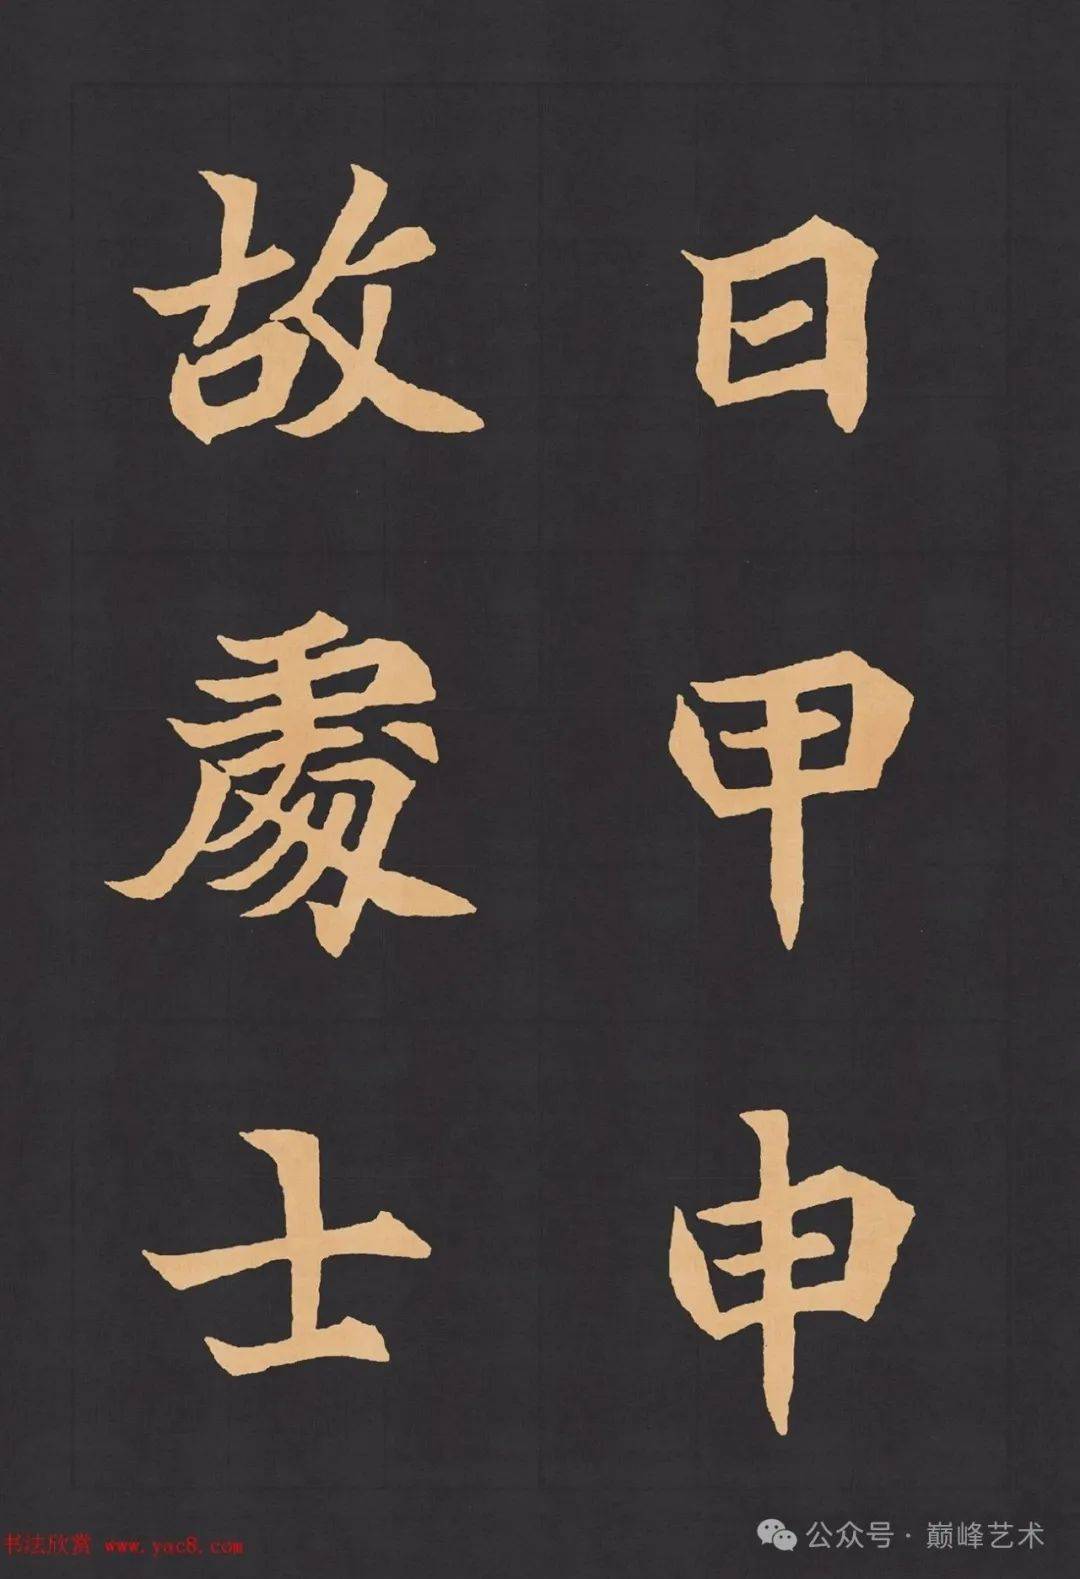 日甲申
故處士
书法欣赏 www.yac8.com
公众号 · 巅峰艺术